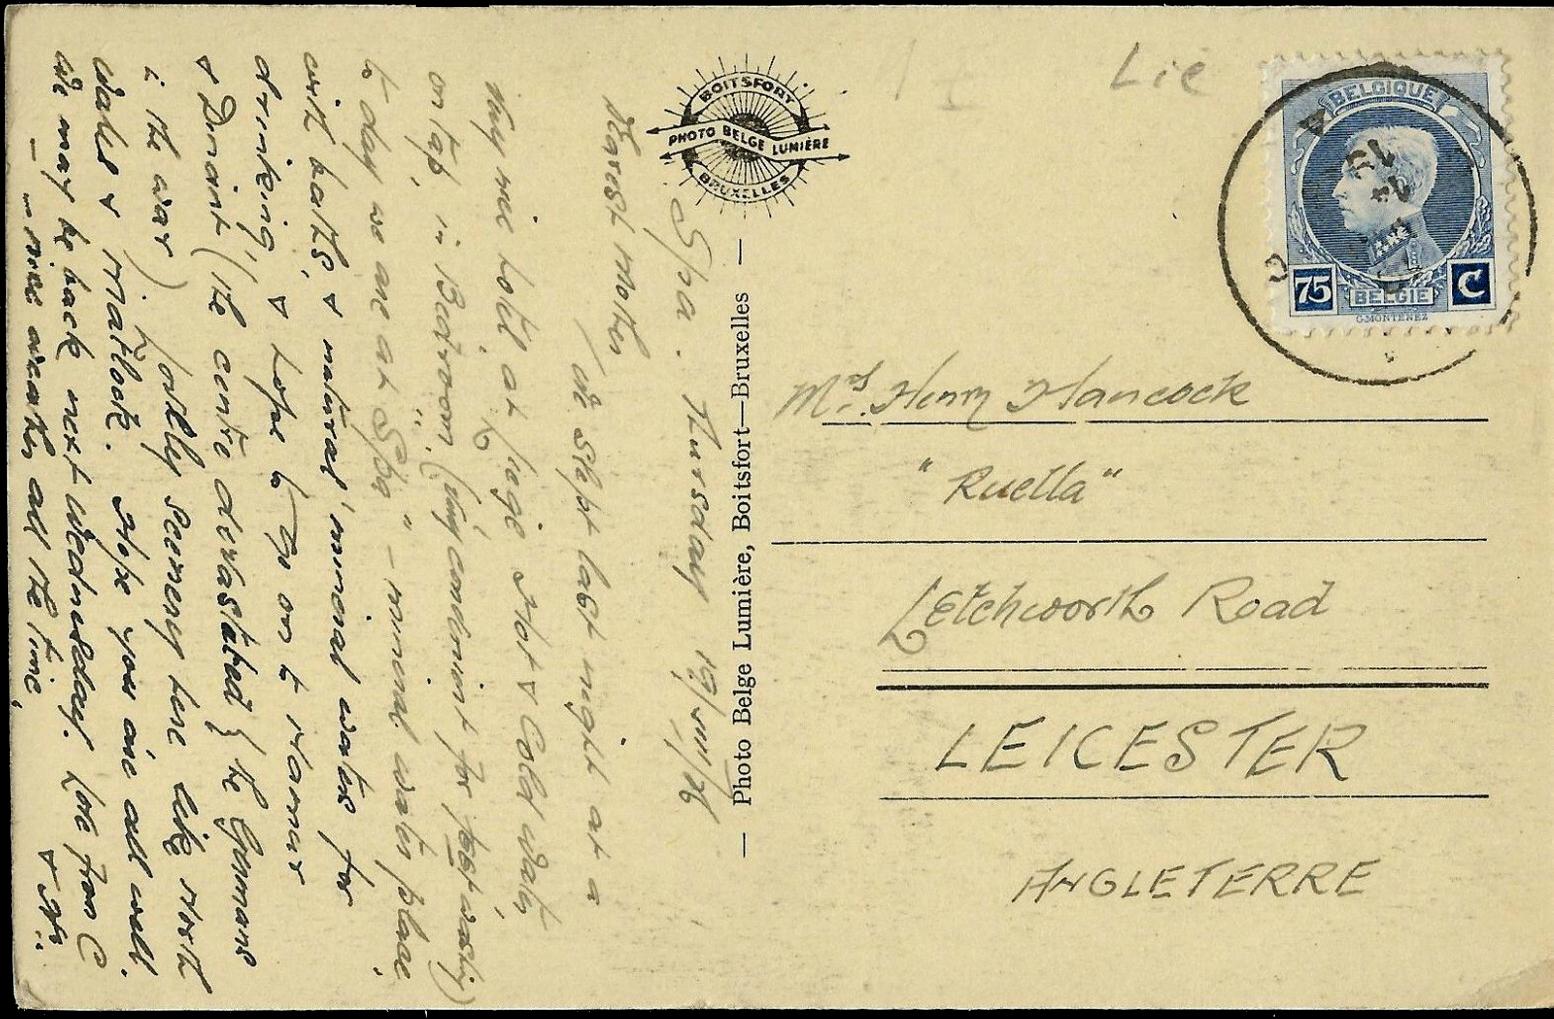 Spa. Thursday 19/VIII/26
Dearest Mother
We slept last night at a
very nice hotel at Liege Hot & Cold water
on tap, in Bedroom, (very convenient for feet washing)
to day we are at "Spa" - mineral water place
with baths, & natural mineral water for
drinking, & hope to go on to Namur
& Dinant (the centre devastated by the Germans
in the war) Lovely scenery here like North
Wales & Matlock. Hope you are all well.
We may be back next Wednesday. Love from C
- nice weather all the time. &
BOITSFORT
PHOTO BELGE LUMIÈRE
BRUXELLES
— Photo Belge Lumière, Boitsfort—Bruxelles —
Lie
BELGIQUE
75 BELGIE C
G.MONTENEZ
Mrs. Henry Hancock
"Ruella"
Letchworth Road
LEICESTER
ANGLETERRE